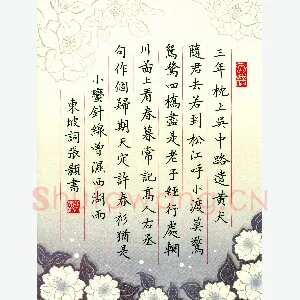 三年枕上吳中路遣黃犬
隨君去若到松江呼小渡莫驚
鴛鷺四橋盡是老子經行處輞
川啚上看春暮常記高人右丞
句作個歸期天定許春衫猶是
小蠻針線曾濕西湖雨
東坡詞張顥書